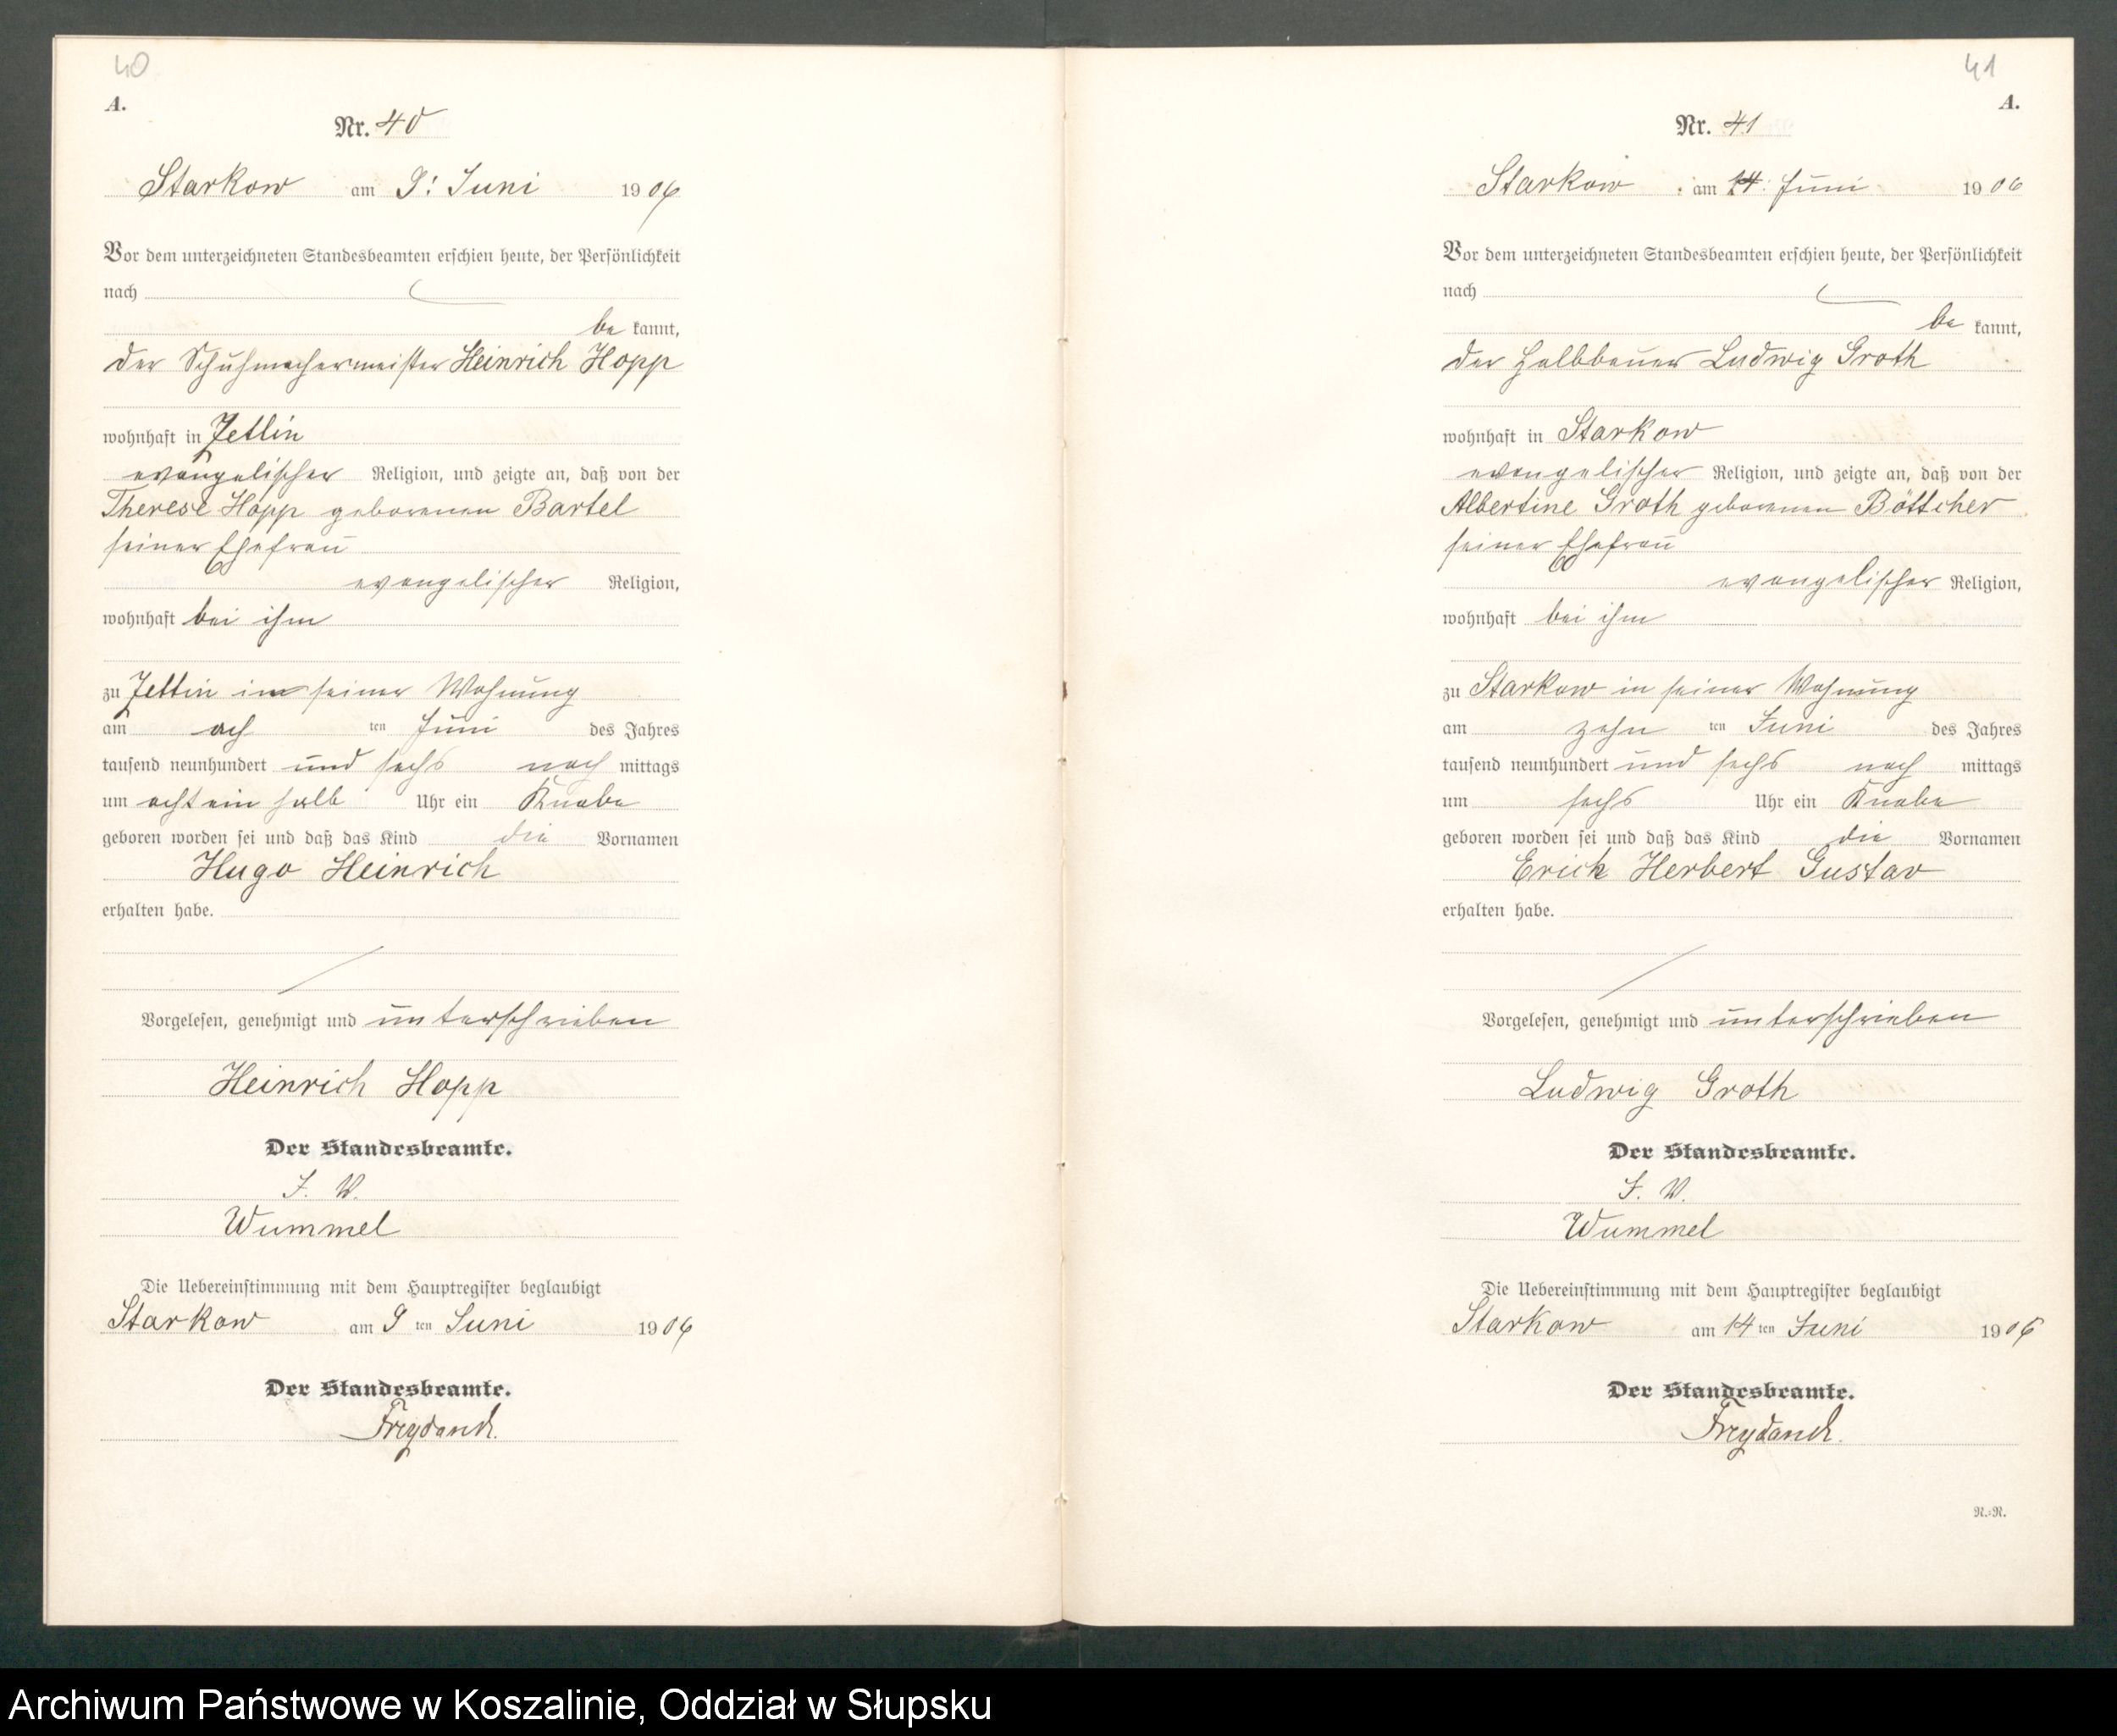 40
A.
Nr. 40
Starkow am 9: Juni 1906
Vor dem unterzeichneten Standesbeamten erschien heute, der Persönlichkeit
nach
be kannt,
der Schuhmachermeister Heinrich Hopp
wohnhaft in Jetlin
evangelischer Religion, und zeigte an, daß von der
Therese Hopp geborenen Bartel
seiner Ehefrau
evangelischer Religion,
wohnhaft bei ihm
zu Jetlin in seiner Wohnung
am ach ten Juni des Jahres
tausend neunhundert und sechs nach mittags
um acht ein halb Uhr ein Knabe
geboren worden sei und daß das Kind die Vornamen
Hugo Heinrich
erhalten habe.
Vorgelesen, genehmigt und unterschrieben
Heinrich Hopp
Der Standesbeamte.
J. V.
Wummel
Die Uebereinstimmung mit dem Hauptregister beglaubigt
Starkow am 9 ten Juni 1906
Der Standesbeamte.
Freydanck.
41
A.
Nr. 41
Starkow am 14. Juni 1906
Vor dem unterzeichneten Standesbeamten erschien heute, der Persönlichkeit
nach
be kannt,
der Halbbauer Ludwig Groth
wohnhaft in Starkow
evangelischer Religion, und zeigte an, daß von der
Albertine Groth geborenen Böttcher
seiner Ehefrau
evangelischer Religion,
wohnhaft bei ihm
zu Starkow in seiner Wohnung
am zehn ten Juni des Jahres
tausend neunhundert und sechs nach mittags
um sechs Uhr ein Knabe
geboren worden sei und daß das Kind die Vornamen
Erich Herbert Gustav
erhalten habe.
Vorgelesen, genehmigt und unterschrieben
Ludwig Groth
Der Standesbeamte.
J. V.
Wummel
Die Uebereinstimmung mit dem Hauptregister beglaubigt
Starkow am 14 ten Juni 1906
Der Standesbeamte.
Freydanck.
N.=R.
Archiwum Państwowe w Koszalinie, Oddział w Słupsku